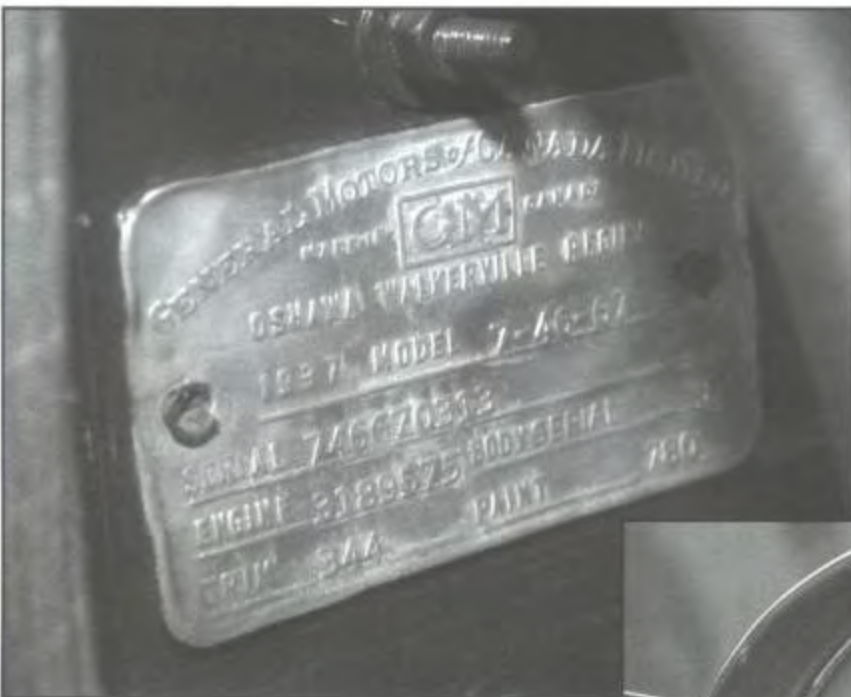 GENERAL MOTORS of CANADA LIMITED
GM
OSHAWA WALKERVILLE REGINA
1937 MODEL 7-46-67
SERIAL 746670313
ENGINE BODY SERIAL
TRIM 344 PAINT 760